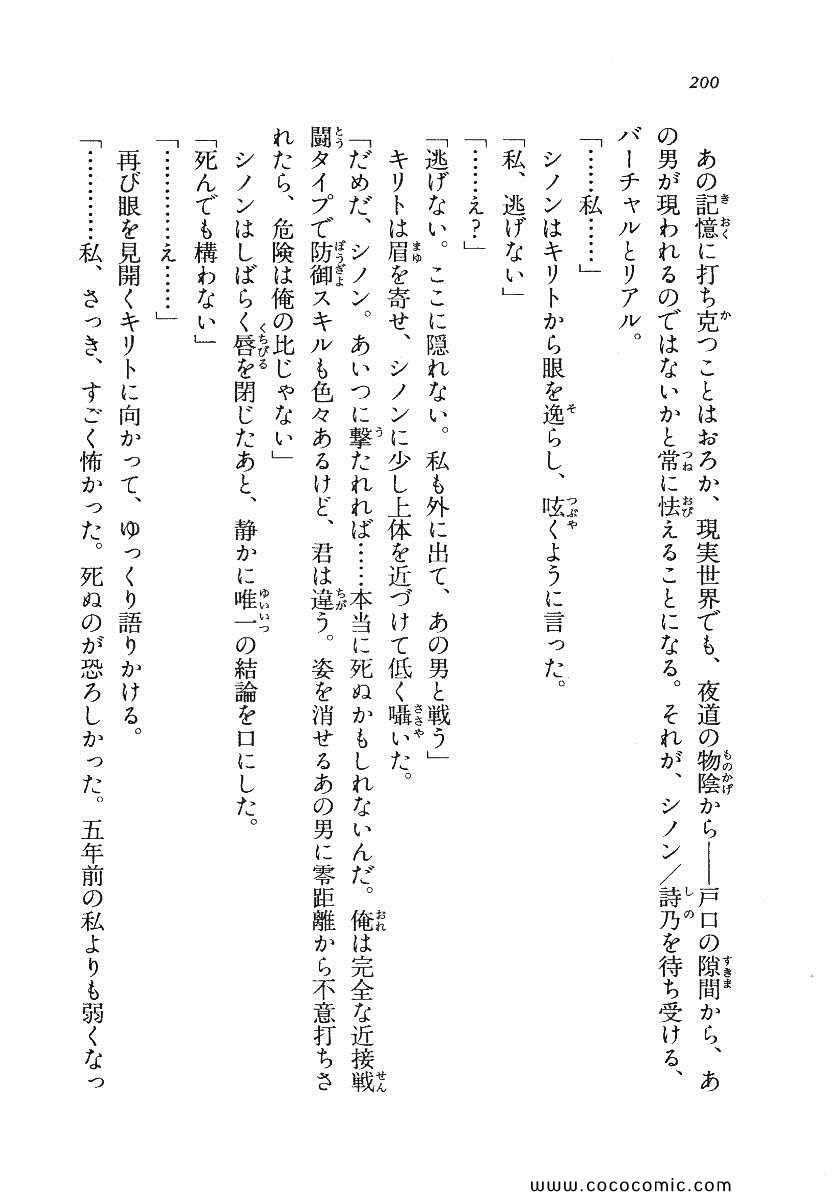 200
あの記憶に打ち克つことはおろか、現実世界でも、夜道の物陰から――戸口の隙間から、あ
の男が現われるのではないかと常に怯えることになる。それが、シノン／詩乃を待ち受ける、
バーチャルとリアル。
「……私……」
シノンはキリトから眼を逸らし、呟くように言った。
「私、逃げない」
「……え？」
「逃げない。ここに隠れない。私も外に出て、あの男と戦う」
キリトは眉を寄せ、シノンに少し上体を近づけて低く囁いた。
「だめだ、シノン。あいつに撃たれれば……本当に死ぬかもしれないんだ。俺は完全な近接戦
闘タイプで防御スキルも色々あるけど、君は違う。姿を消せるあの男に零距離から不意打ちさ
れたら、危険は俺の比じゃない」
シノンはしばらく唇を閉じたあと、静かに唯一の結論を口にした。
「死んでも構わない」
「…………え……」
再び眼を見開くキリトに向かって、ゆっくり語りかける。
「…………私、さっき、すごく怖かった。死ぬのが恐ろしかった。五年前の私よりも弱くなっ
www.cococomic.com